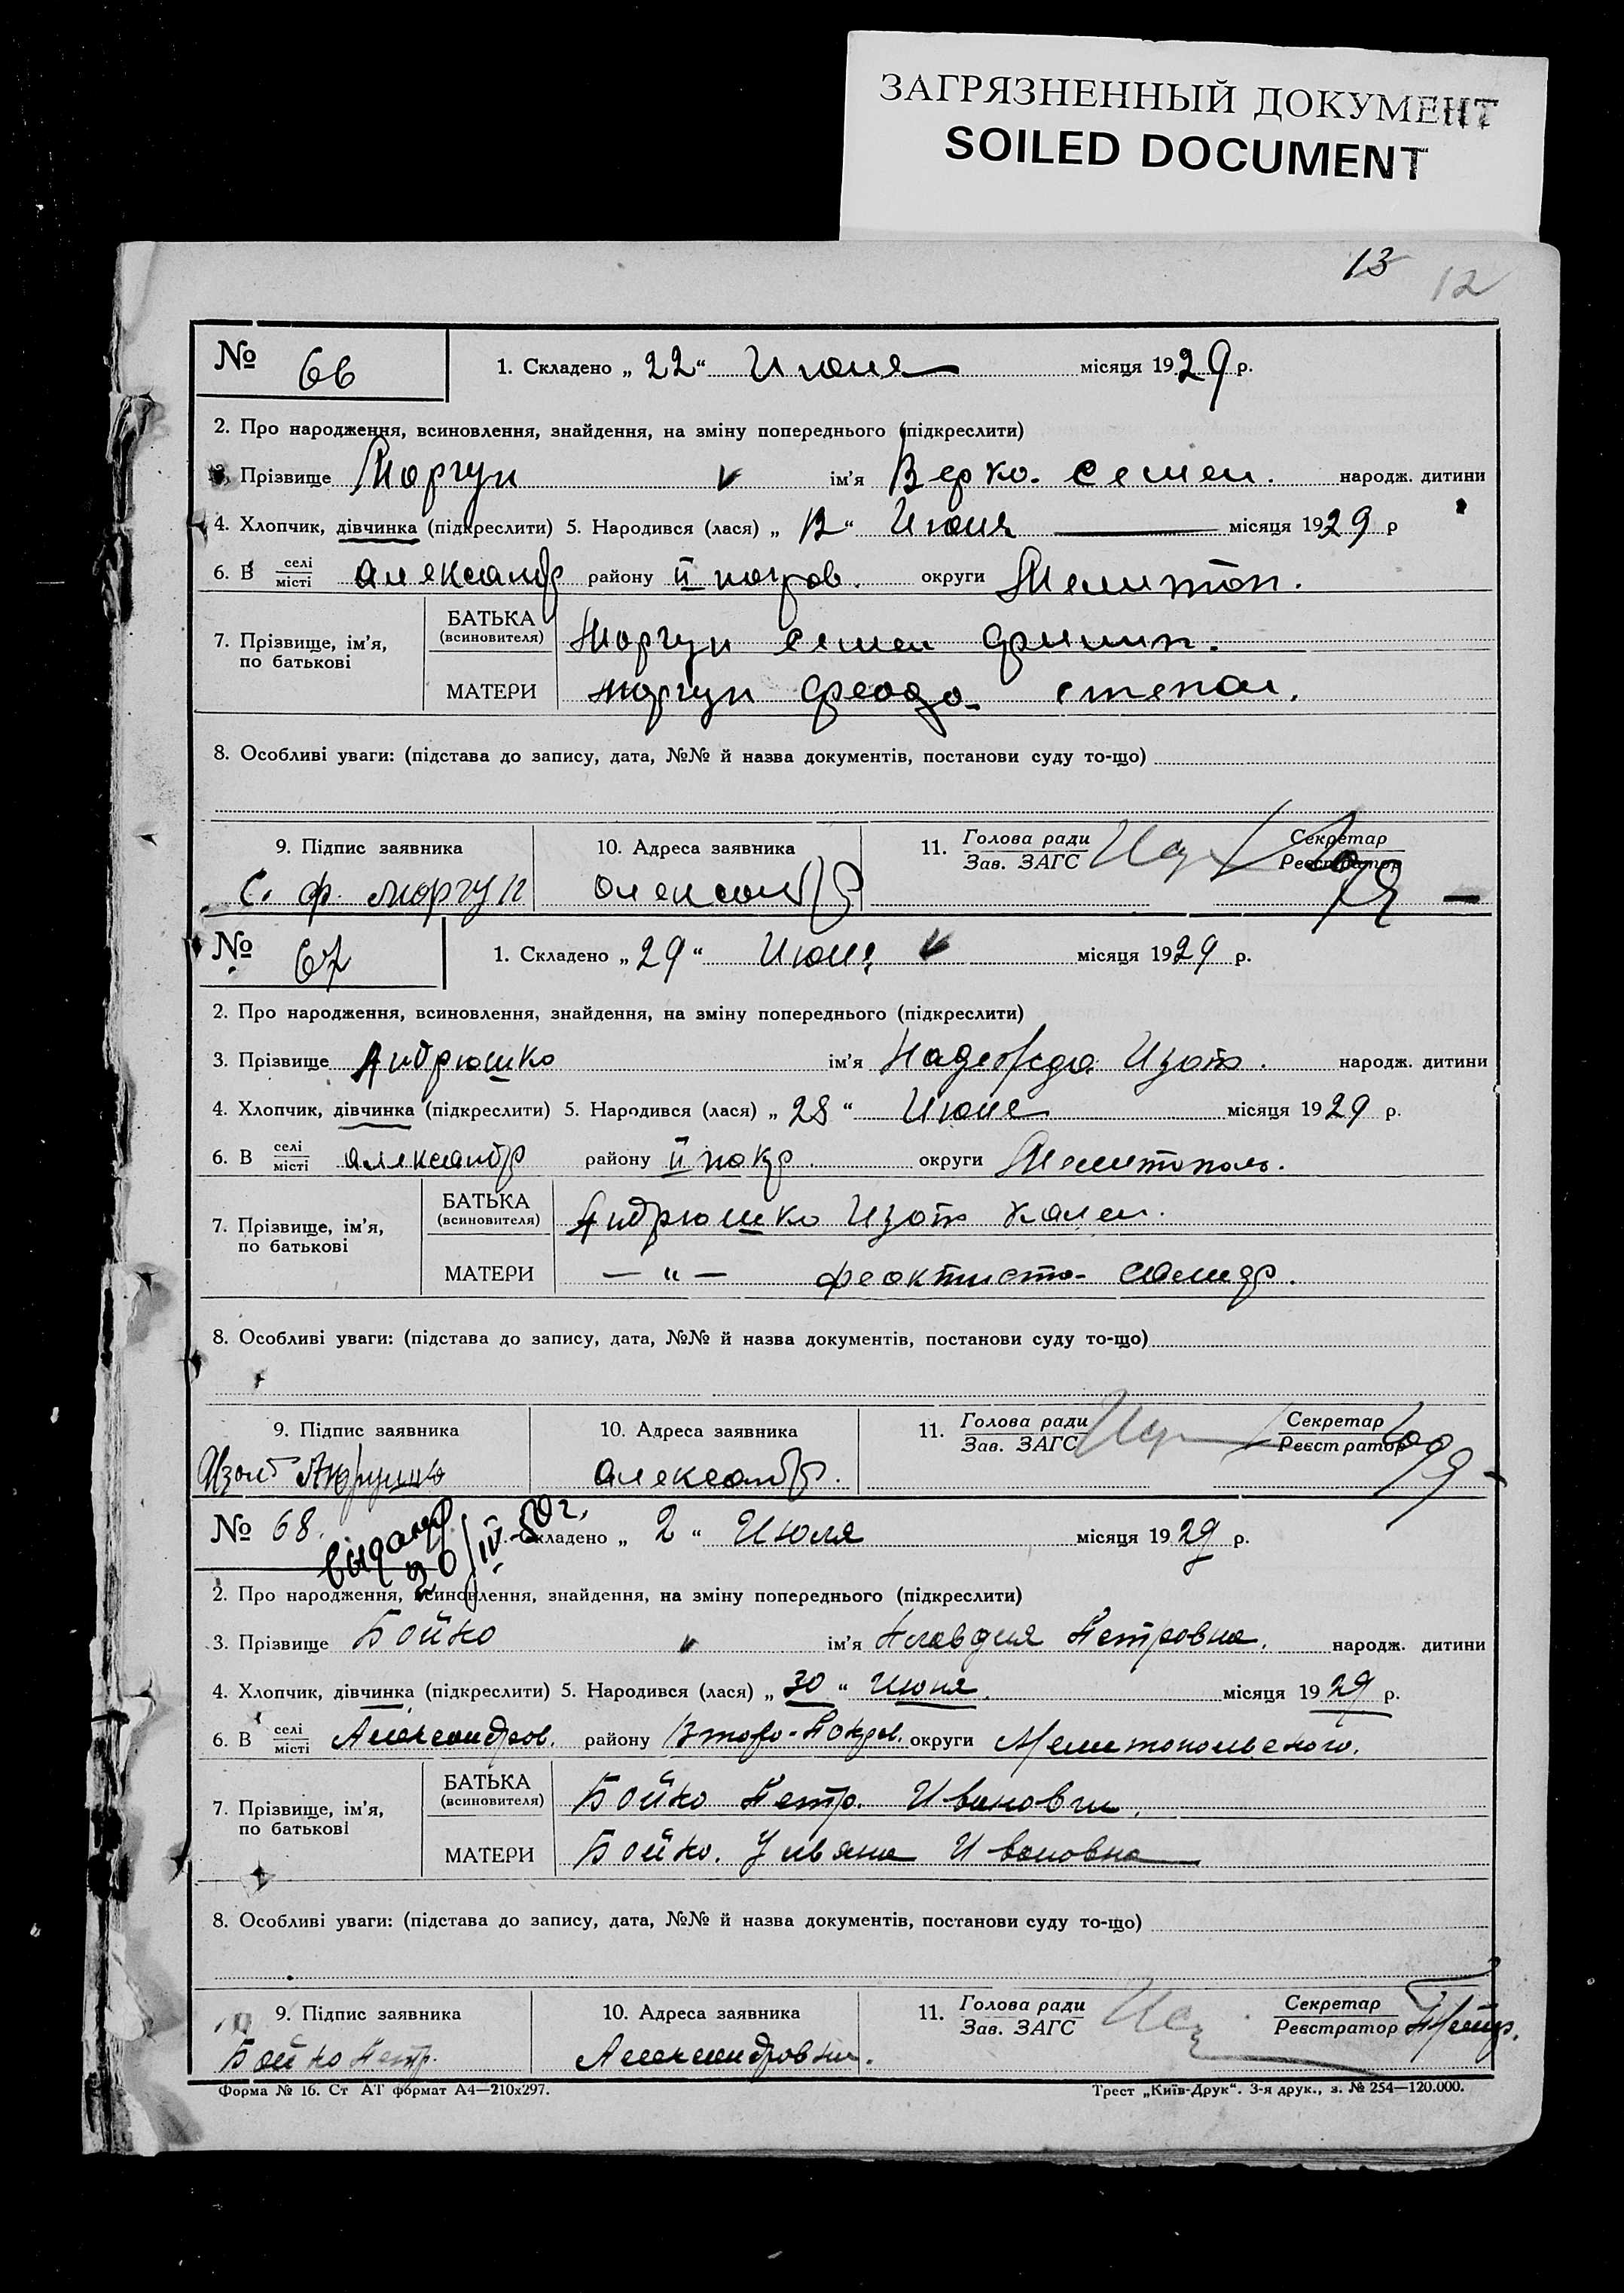 ЗАГРЯЗНЕННЫЙ ДОКУМЕНТ
SOILED DOCUMENT
13 12
№ 66 1. Складено „ 22 “ Июня місяця 1929 р.
2. Про народження, всиновлення, знайдення, на зміну попереднього (підкреслити)
3. Прізвище Моргун ім'я Вера. Семен. народж. дитини
4. Хлопчик, дівчинка (підкреслити) 5. Народився (лася) „ 12 “ Июня місяця 1929 р
6. В селі/місті Александр району II покров. округи Мелитоп.
7. Прізвище, ім'я, по батькові
БАТЬКА (всиновителя) Моргун Семен Филип.
МАТЕРИ Моргун Феодо. Степан.
8. Особливі уваги: (підстава до запису, дата, №№ й назва документів, постанови суду то-що)
9. Підпис заявника 10. Адреса заявника 11. Голова ради/Зав. ЗАГС Секретар/Реєстратор
С. Ф. Моргун Александр
№ 67 1. Складено „ 29 “ Июня місяця 1929 р.
2. Про народження, всиновлення, знайдення, на зміну попереднього (підкреслити)
3. Прізвище Андрюшко ім'я Надежда Изот. народж. дитини
4. Хлопчик, дівчинка (підкреслити) 5. Народився (лася) „ 28 “ Июня місяця 1929 р.
6. В селі/місті Александр району II покр. округи Мелитополь.
7. Прізвище, ім'я, по батькові
БАТЬКА (всиновителя) Андрюшко Изот
МАТЕРИ — “ — Феоктиста
8. Особливі уваги: (підстава до запису, дата, №№ й назва документів, постанови суду то-що)
9. Підпис заявника 10. Адреса заявника 11. Голова ради/Зав. ЗАГС Секретар/Реєстратор
Изот Александр.
№ 68. Складено „ 2 “ Июля місяця 1929 р.
20/IV-50 г.
2. Про народження, всиновлення, знайдення, на зміну попереднього (підкреслити)
3. Прізвище Бойко ім'я Клавдия Петровна. народж. дитини
4. Хлопчик, дівчинка (підкреслити) 5. Народився (лася) „ 30 “ Июня. місяця 1929 р.
6. В селі/місті Александров. району Второ-Покров. округи Мелитопольского.
7. Прізвище, ім'я, по батькові
БАТЬКА (всиновителя) Бойко Петр. Иванович.
МАТЕРИ Бойко. Ульяна Ивановна
8. Особливі уваги: (підстава до запису, дата, №№ й назва документів, постанови суду то-що)
9. Підпис заявника 10. Адреса заявника 11. Голова ради/Зав. ЗАГС Секретар/Реєстратор
Бойко Петр. Александровка.
Форма № 16. Ст АТ формат А4—210х297. Трест „Київ-Друк“. 3-я друк., з. № 254—120.000.